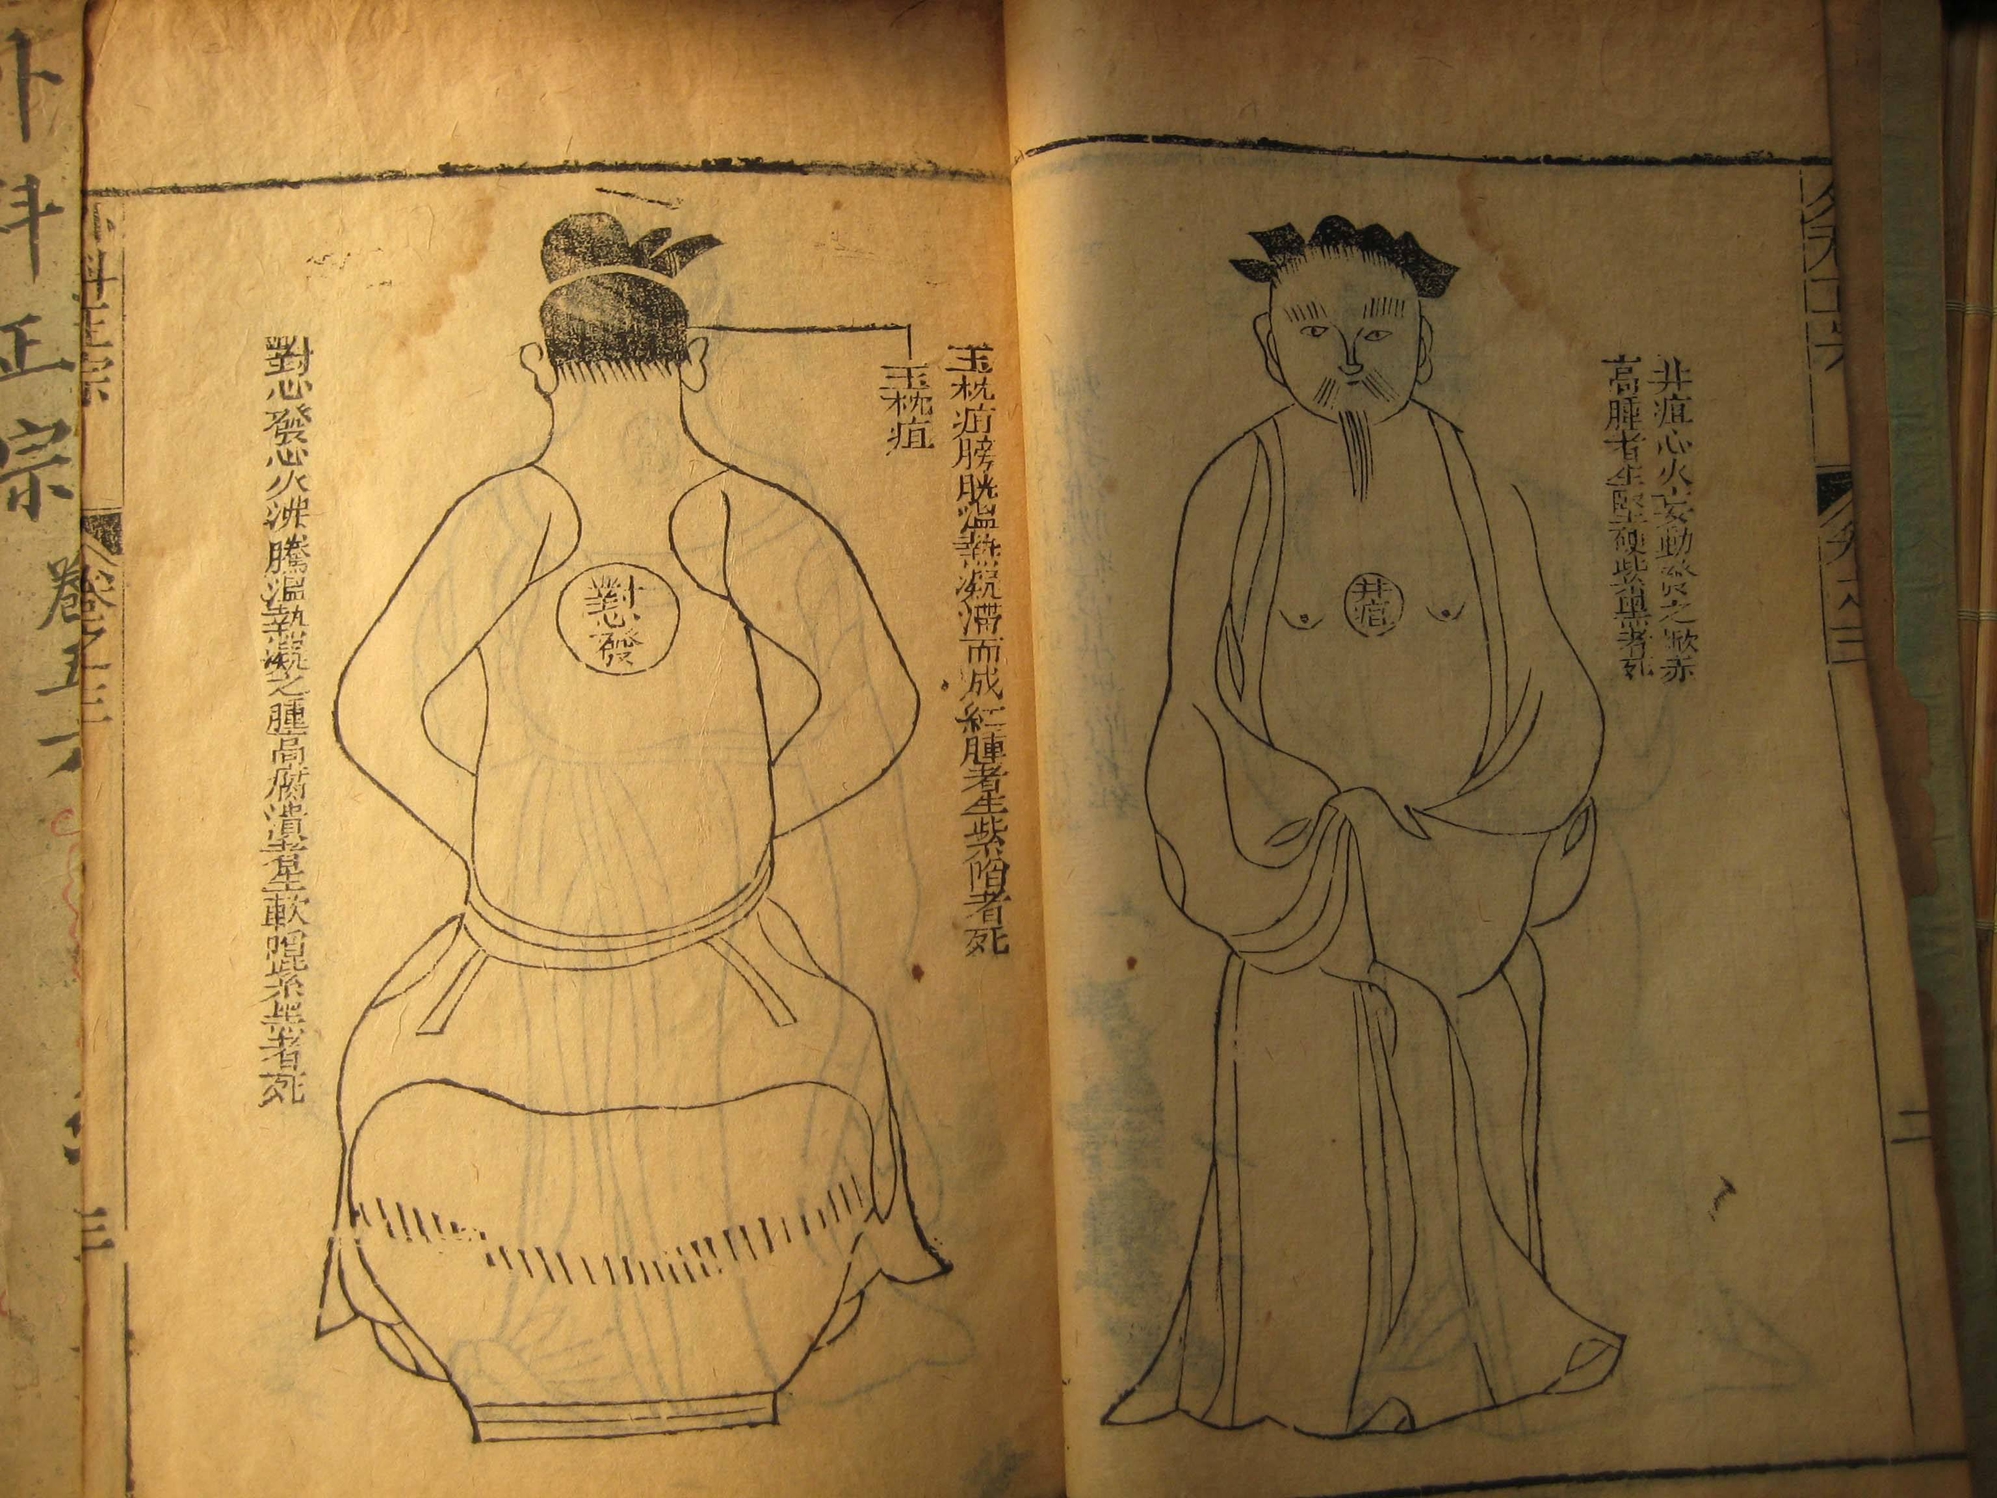 井疽心火妄動發之焮赤
高腫者生堅硬紫黑者死
井疽
玉枕疽膀胱溫熱凝滯而成紅腫者生紫陷者死
玉枕疽
對心發
對心發心火沸騰溫熱凝之腫高腐潰者生軟陷紫黑者死
二
外科正宗
卷之三
三
外科正宗 卷五六